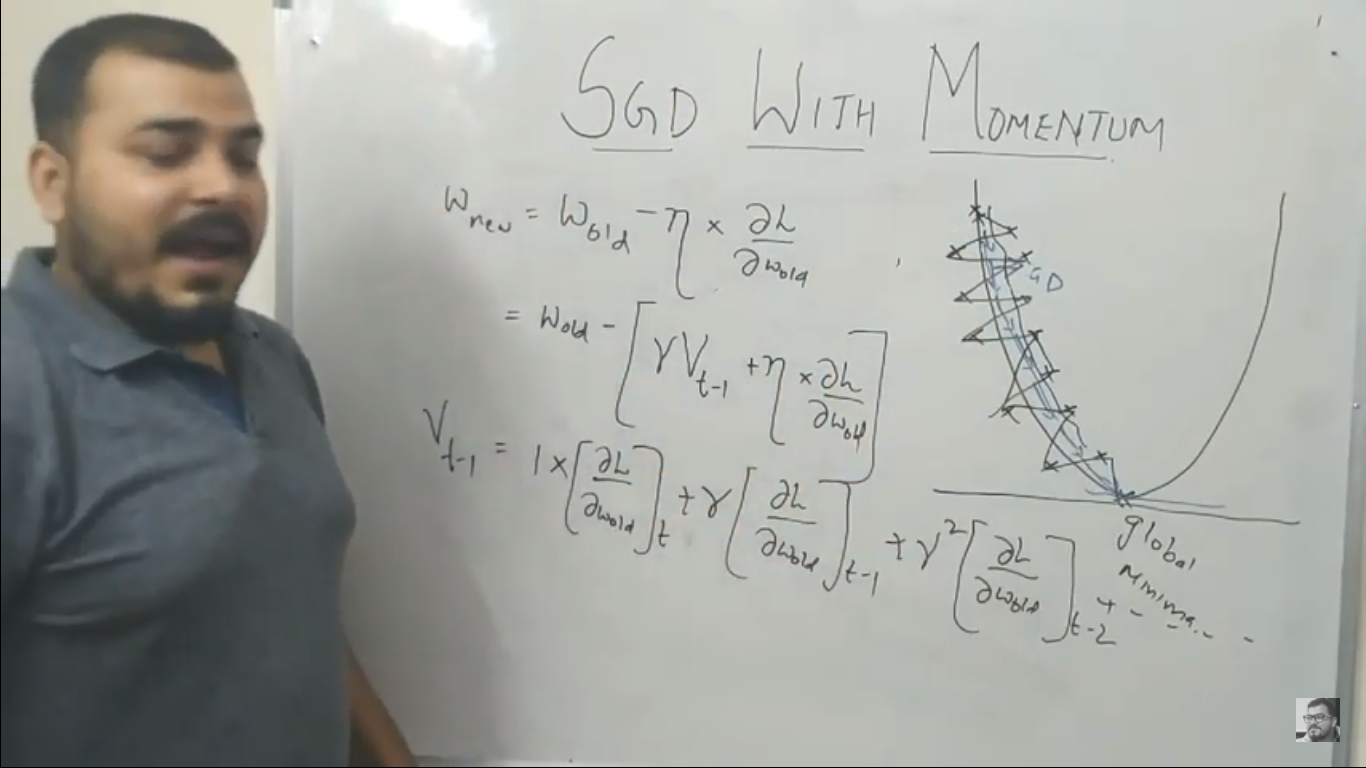 SGD WITH MOMENTUM
W_new = W_old - η × ∂L/∂w_old
= W_old - [γV_t-1 + η × ∂L/∂w_old]
GD
V_t-1 = 1 × [∂L/∂w_old]_t + γ [∂L/∂w_old]_t-1 + γ² [∂L/∂w_old]_t-2 + - - - -
global
minima